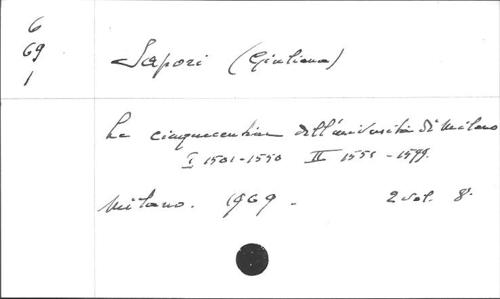 6
69
1
Sapori (Giuliana)
Le cinquecentine dell'università di Milano
I 1501-1550 II 1551-1599.
Milano. 1969. 2 vol. 8°